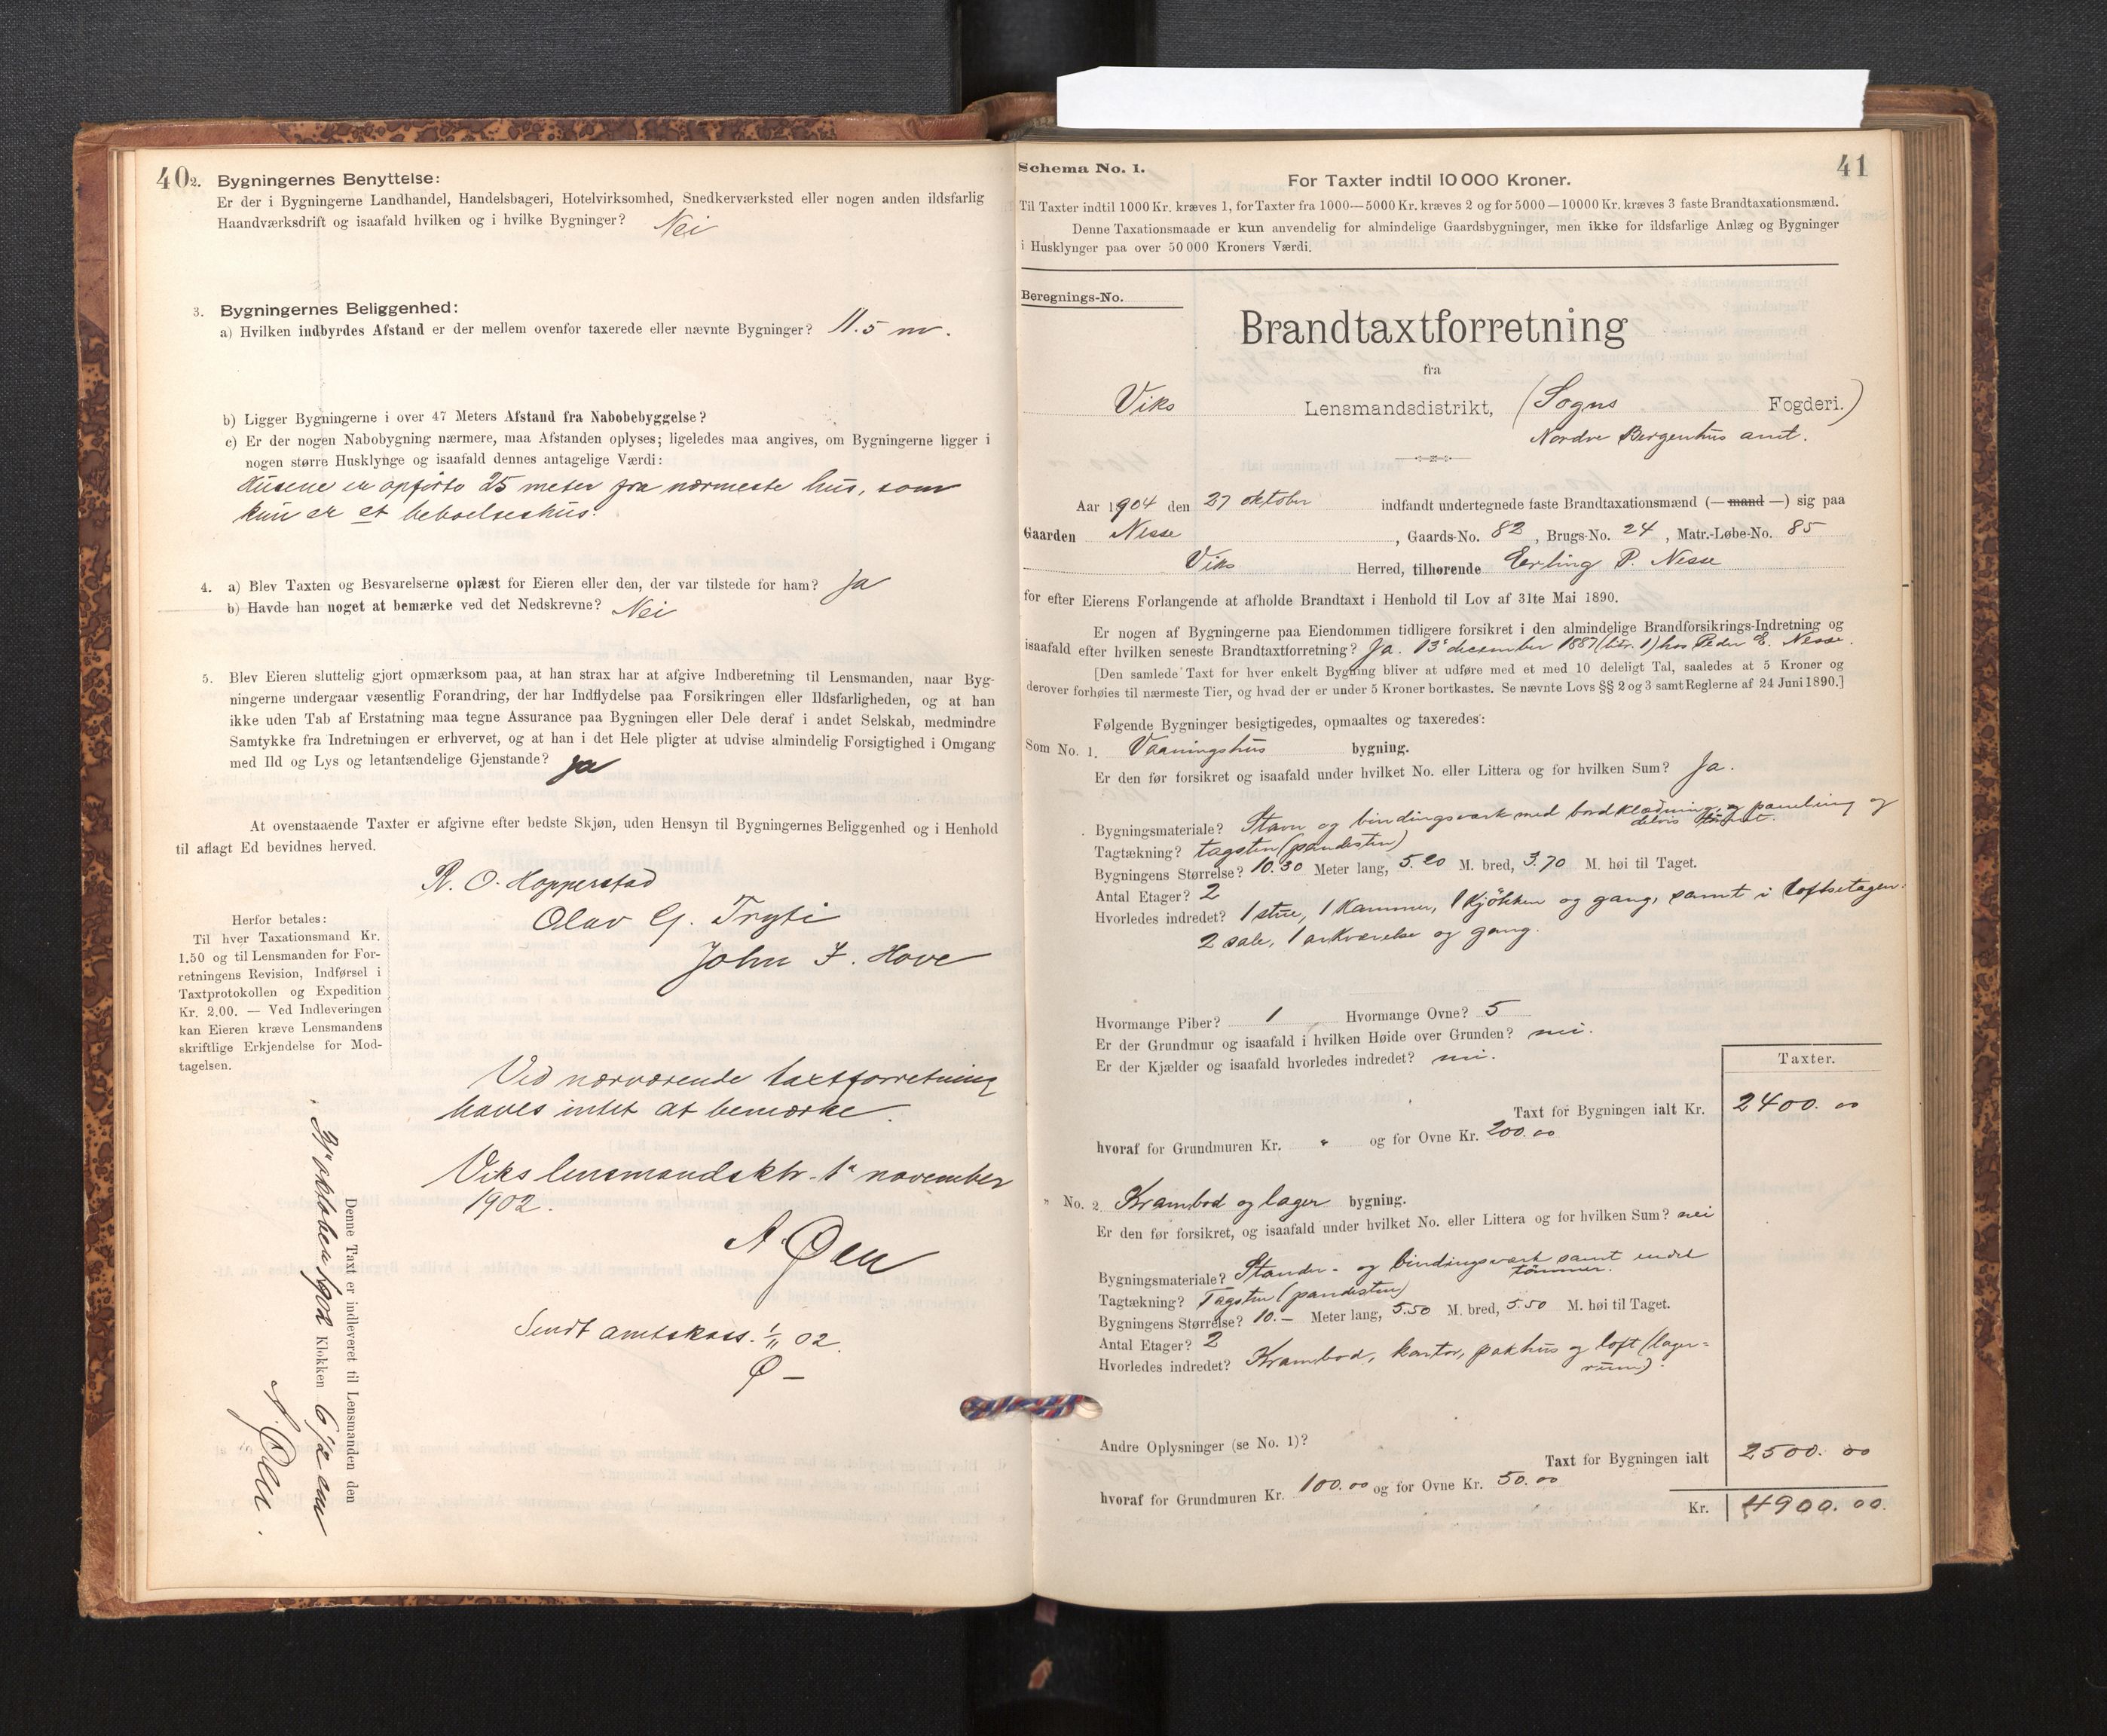 40
2. Bygningernes Benyttelse:
Er der i Bygningerne Landhandel, Handelsbageri, Hotelvirksomhed, Snedkerværksted eller nogen anden ildsfarlig
Haandværksdrift og isaafald hvilken og i hvilke Bygninger? Nei
3. Bygningernes Beliggenhed:
a) Hvilken indbyrdes Afstand er der mellem ovenfor taxerede eller nævnte Bygninger? 11.5 m.
b) Ligger Bygningerne i over 47 Meters Afstand fra Nabobebyggelse?
c) Er der nogen Nabobygning nærmere, maa Afstanden oplyses; ligeledes maa angives, om Bygningerne ligger i
nogen større Husklynge og isaafald dennes antagelige Værdi:
Husene er opførte 25 meter fra nærmeste hus, som
kun er et beboelseshus.
4. a) Blev Taxten og Besvarelserne oplæst for Eieren eller den, der var tilstede for ham? Ja
b) Havde han noget at bemærke ved det Nedskrevne? Nei
5. Blev Eieren sluttelig gjort opmærksom paa, at han strax har at afgive Indberetning til Lensmanden, naar Byg-
ningerne undergaar væsentlig Forandring, der har Indflydelse paa Forsikringen eller Ildsfarligheden, og at han
ikke uden Tab af Erstatning maa tegne Assurance paa Bygningen eller Dele deraf i andet Selskab, medmindre
Samtykke fra Indretningen er erhvervet, og at han i det Hele pligter at udvise almindelig Forsigtighed i Omgang
med Ild og Lys og letantændelige Gjenstande? Ja
At ovenstaaende Taxter er afgivne efter bedste Skjøn, uden Hensyn til Bygningernes Beliggenhed og i Henhold
til aflagt Ed bevidnes herved.
R. O. Hopperstad
Olav G. Tryti
John I. Hove
Herfor betales:
Til hver Taxationsmand Kr.
1.50 og til Lensmanden for For-
retningens Revision, Indførsel i
Taxtprotokollen og Expedition
Kr. 2.00. — Ved Indleveringen
kan Eieren kræve Lensmandens
skriftlige Erkjendelse for Mod-
tagelsen.
Ved nærværende taxtforretning
haves intet at bemærke.
Viks lensmandsktr. 1ª november
1902.
A Øen
Sendt amtskass. 1/11 02.
Ø –
Denne Taxt er indleveret til Lensmanden den
oktober 1902 Klokken 6 1/2 em
A. Øen.
41
Schema No. 1.
For Taxter indtil 10 000 Kroner.
Til Taxter indtil 1000 Kr. kræves 1, for Taxter fra 1000—5000 Kr. kræves 2 og for 5000—10000 Kr. kræves 3 faste Brandtaxationsmænd.
Denne Taxationsmaade er kun anvendelig for almindelige Gaardsbygninger, men ikke for ildsfarlige Anlæg og Bygninger
i Husklynger paa over 50 000 Kroners Værdi.
Beregnings-No.
Brandtaxtforretning
fra
Viks Lensmandsdistrikt, (Sogns Fogderi.)
Nordre Bergenhus amt.
Aar 1904 den 27 oktober indfandt undertegnede faste Brandtaxationsmænd (— mand —) sig paa
Gaarden Nesse, Gaards-No. 82, Brugs-No. 24, Matr.-Løbe-No. 85
Viks Herred, tilhørende Erling P. Nesse
for efter Eierens Forlangende at afholde Brandtaxt i Henhold til Lov af 31te Mai 1890.
Er nogen af Bygningerne paa Eiendommen tidligere forsikret i den almindelige Brandforsikrings-Indretning og
isaafald efter hvilken seneste Brandtaxtforretning? Ja. 13de december 1887 (litr. 1) hos Peder E. Nesse.
[Den samlede Taxt for hver enkelt Bygning bliver at udføre med et med 10 deleligt Tal, saaledes at 5 Kroner og
derover forhøies til nærmeste Tier, og hvad der er under 5 Kroner bortkastes. Se nævnte Lovs §§ 2 og 3 samt Reglerne af 24 Juni 1890.]
Følgende Bygninger besigtigedes, opmaaltes og taxeredes:
Som No. 1. Vaaningshus bygning.
Er den før forsikret og isaafald under hvilket No. eller Littera og for hvilken Sum? Ja.
Bygningsmateriale? Stavn og bindingsværk med bordklædning og paneling og
delvis tømret.
Tagtækning? tagsten (pandesten)
Bygningens Størrelse? 10.30 Meter lang, 5.20 M. bred, 3.70 M. høi til Taget.
Antal Etager? 2
Hvorledes indredet? 1 stue, 1 kammer, 1 kjøkken og gang, samt i loftsetagen
2 sale, 1 arkværelse og gang.
Hvormange Piber? 1 Hvormange Ovne? 5
Er der Grundmur og isaafald i hvilken Høide over Grunden? nei.
Er der Kjælder og isaafald hvorledes indredet? nei.
Taxter.
Taxt for Bygningen ialt Kr. 2400. 00
hvoraf for Grundmuren Kr. " og for Ovne Kr. 200.00
" No. 2 Krambod og lager bygning.
Er den før forsikret, og isaafald under hvilket No. eller Littera og for hvilken Sum? nei
Bygningsmateriale? Stander- og bindingsværk samt endel
tømmer.
Tagtækning? Tagsten (pandesten)
Bygningens Størrelse? 10.— Meter lang, 5.50 M. bred, 5.50 M. høi til Taget.
Antal Etager? 2
Hvorledes indredet? Krambod, kontor, pakhus og loft (lager-
rum).
Andre Oplysninger (se No. 1)?
Taxt for Bygningen ialt 2500. 00
hvoraf for Grundmuren Kr. 100.00 og for Ovne Kr. 50.00
Kr. 4900. 00.